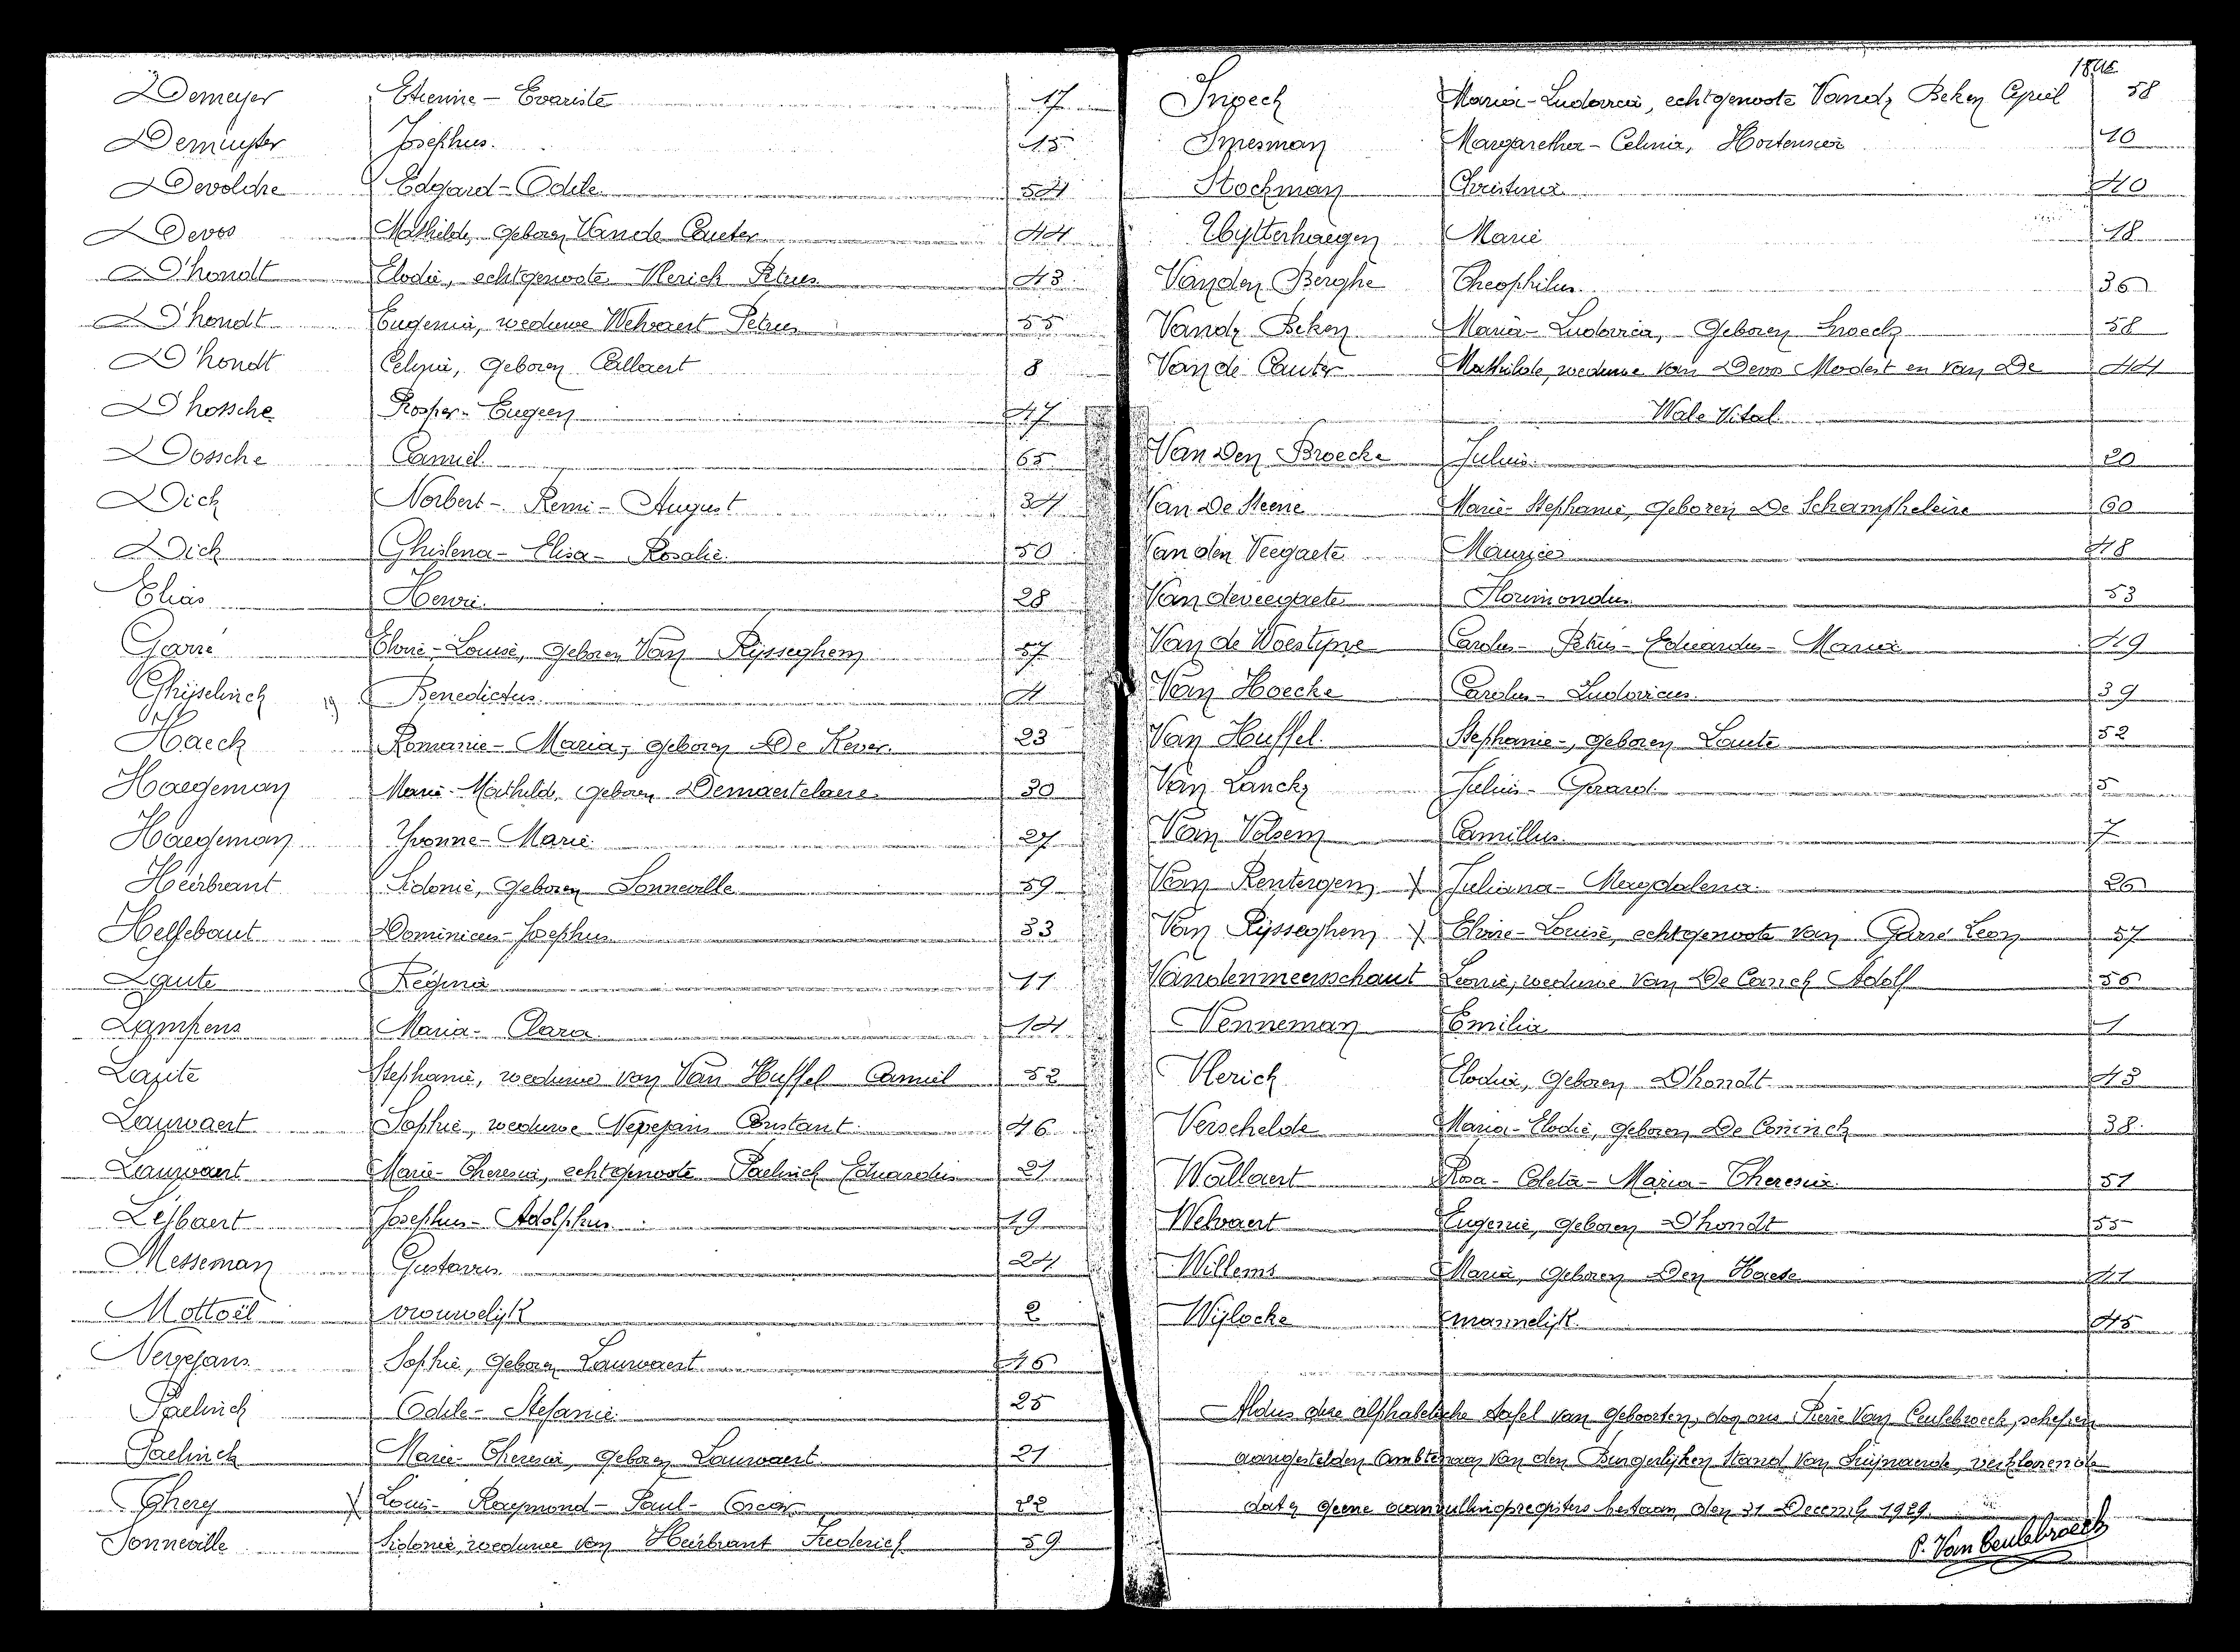 Demeyer Etienne - Evariste 17
Demuyter Josephus. 15
Devoldre Edgard - Odile 54
Devos Mathilde, geboren Van de Cauter 44
D'hondt Elodie, echtgenoote Vlerick Petrus 43
D'hondt Eugenia, weduwe Welvaert Petrus 55
D'hondt Celina, geboren Callaert 8
D'hossche Prosper - Eugeen 47
Dossche Camiel 65
Dick Norbert - Remi - August 34
Dick Ghislena - Elisa - Rosalie 50
Elias Henri 28
Garré Elvire - Louise, geboren Van Rijsseghem 57
Ghijselinck Benedictus 4
Haeck Romanie - Maria, geboren De Keyser 23
Haegeman Marie - Mathilde, geboren Demaertelaere 30
Haegeman Yvonne - Marie 27
Heirbrant Sidonie, geboren Sonneville 59
Helsebaut Dominicus - Josephus 33
Laute Regina 11
Lampens Maria - Clara 14
Laute Stephanie, weduwe van Van Huffel Camiel 52
Lauwaert Sophie, weduwe Neyejans Constant 46
Lauwaert Marie - Theresia, echtgenoote Paelinck Eduardus 21
Lijbaert Josephus - Adolphus 19
Messeman Gustavus 24
Mottoël vrouwelijk 2
Neyejans Sophie, geboren Lauwaert 46
Paelinck Odile - Stefanie 25
Paelinck Marie - Theresia, geboren Lauwaert 21
Ghery Louis - Raymond - Paul - Oscar 22
Sonneville Sidonie, weduwe van Heirbrant Frederick 59
Snoeck Maria - Ludovica, echtgenoote Vand. Beken Cyriel 58
Smesman Margaretha - Celina, Hortensia 10
Stockman Christina 40
Uytterhaegen Marie 18
Van den Berghe Theophilus 36
Vand. Beken Maria - Ludovica, geboren Snoeck 58
Van de Cauter Mathilde, weduwe van Devos Modest en van De 44
Wale Vital
Van Den Broecke Julius 20
Van De Steene Marie - Stephanie, geboren De Schampheleire 60
Van den Veegaete Maurice 48
Van deveegaete Florimondus 53
Van de Woestyne Carolus - Petrus - Eduardus - Maria 49
Van Hoecke Carolus - Ludovicus 39
Van Huffel Stephanie, geboren Laute 52
Van Lancker Julius - Gerard 5
Van Volsem Camillus 7
Van Renterghem Juliana - Magdalena 26
Van Rijsseghem Elvire - Louise, echtgenoote van Garré Leon 57
Vandenmeerschaut Leonie, weduwe van De Canck Adolf 56
Venneman Emilia 1
Vlerick Elodia, geboren D'hondt 43
Verschelde Maria - Elodie, geboren De Coninck 38
Wallaert Rosa - Coleta - Maria - Theresia 51
Welvaert Eugenie, geboren D'hondt 55
Willems Maria, geboren Den Haese 41
Wijlocke mannelijk 45
Aldus deze alphabetische tafel van geboorten, door ons Pierre Van Ceulebroeck, schepen
aangestelden Ambtenaar van den Burgerlijken Stand van Swijnaerde, verklarende
dat er geene aanvullingsregisters bestaan, den 31 Decemb. 1929.
P. Van Ceulebroeck